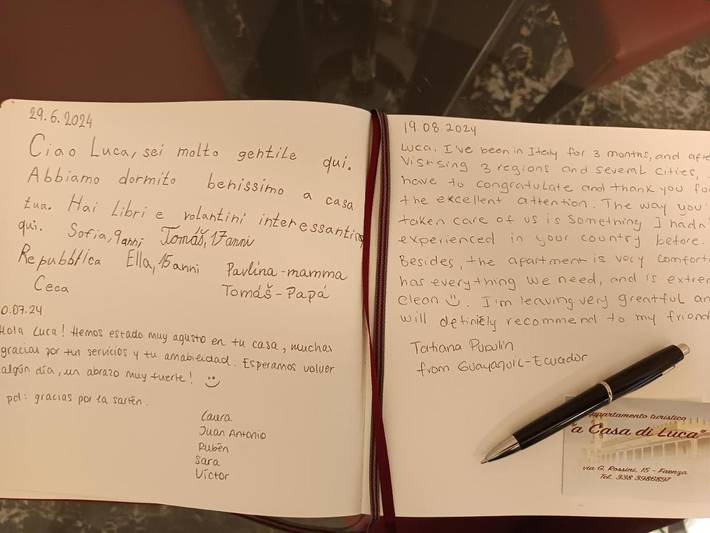 29.6.2024
Ciao Luca, sei molto gentile qui.
Abbiamo dormito benissimo a casa
tua. Hai Libri e volantini interessantiss
qui. Sofia, 9 anni Tomáš, 17 anni
Repubblica Ella, 15 anni Pavlína-mamma
Ceca Tomáš-Papá
0.07.24
Hola Luca! Hemos estado muy agusto en tu casa, muchas
gracias por tus servicios y tu amabilidad. Esperamos volver
algún día, un abrazo muy fuerte!
pd: gracias por la sartén.
Laura
Juan Antonio
Rubén
Sara
Víctor
19.08.2024
Luca, I've been in Italy for 3 months, and afte
Visitsing 3 regions and several cities,
have to congratulate and thank you fo
the excellent attention. The way you
taken care of us is something I hadn'
experienced in your country before.
Besides, the apartment is very comfort
has everything we need, and is extrem
clean. I'm leaving very greatful an
will definely recommend to my friend
Tatiana
from Guayaquil-Ecuador
Appartamento turistico
"a Casa di Luca"
via G. Rossini, 15 - Faenza
Tel. 338 3986897